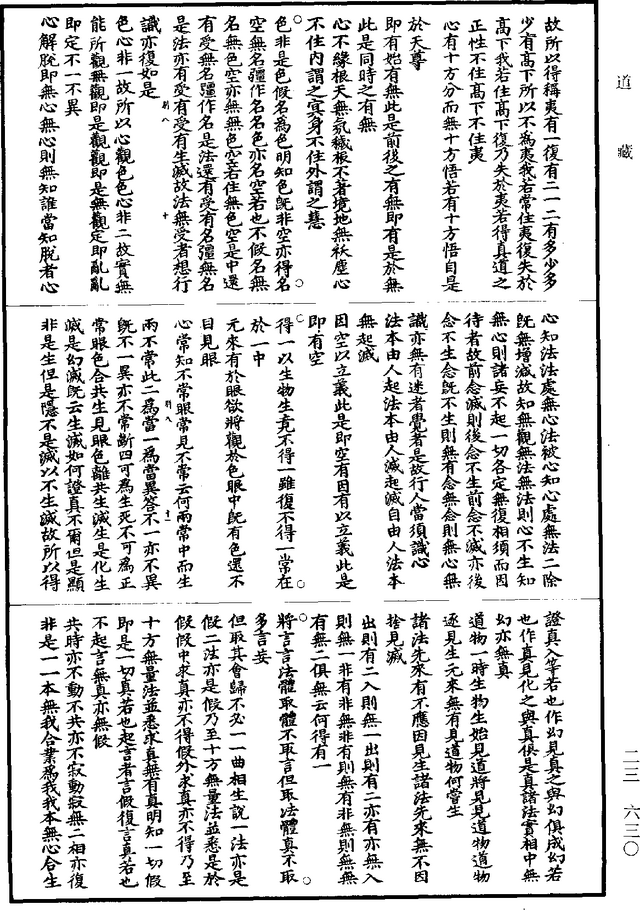 道藏
故所以得稱夷有一復有二一二有多少多
少有高下所以不為夷我若常住夷復失於
高下我若住高下復乃失於夷若得真道之
正性不住高下不住夷
心有十方分而無十方悟若有十方悟自是
於天尊
即有始有無此是前後之有無即有是於無
此是同時之有無
心不緣根天無氛穢根不著境地無袄塵心
不住內謂之寔身不住外謂之慧
色非是色假名為色明知色既非空亦得名
空無名彊作名名色亦名空若也不假名無
名無色空亦無無色空若住無色空是中還
有受無名彊作名是法還有受有名彊無名
是法亦有受有受有生滅故法無受者想行
識亦復如是
色心非一故所以心觀色色心非二故實無
能所觀無觀即是觀觀即是無觀定即亂亂
即定不一不異
心解脫即無心無心則無知誰當知脫者心
心知法法處無心法被心知心處無法二除
既無增減故知無觀無法無法則心不生知
無心則諸妄不起一切各定無復相須而因
待者故前念滅則後念不生前念不滅亦後
念不生念既不生則無有念無念則無心無
識亦無有迷者覺者是故行人當須識心
法本由人起法本由人滅起滅自由人法本
無起滅
因空以立義此是即空有因有以立義此是
即有空
得一以生物生竟不得一雖復不得一常在
於一中
元來有於眼欲將觀於色眼中既有色還不
目見眼
心常知不常眼常見不常云何兩常中而生
兩不常此二為當一為當異答不一亦不異
既不一異亦不常斷四可為生死不可為正
常眼色合共生見眼色離共生滅生是化生
滅是幻滅既云生滅如何證真不爾但是顯
非是生但是隱不是滅以不生滅故所以得
證真入等若也作幻見真之與幻俱成幻若
也作真見化之與真俱是真諸法實相中無
幻亦無真
道物一時生物生始見道將見見道物道物
逐見生元來無有見道物何嘗生
諸法先來有不應因見生諸法先來無不因
捨見滅
出則有二入則無一出則有二亦有亦無入
則無一非有非無非有則無有非無則無無
有無二俱無云何得有一
將言言法體取體不取言但取法體真不取
多言妄
但取其會歸不必一一曲相生說一法亦是
假二法亦是假乃至十方無量法並悉是於
假假中求真亦不得假外求真亦不得乃至
十方無量法並悉求真無有真明知一切假
即是一切真若也起言者言假復言真若也
不起言無真亦無假
共時亦不動不共亦不寂動寂無二相亦復
非是一一本無我合業為我我本無心合生
二三 六三〇